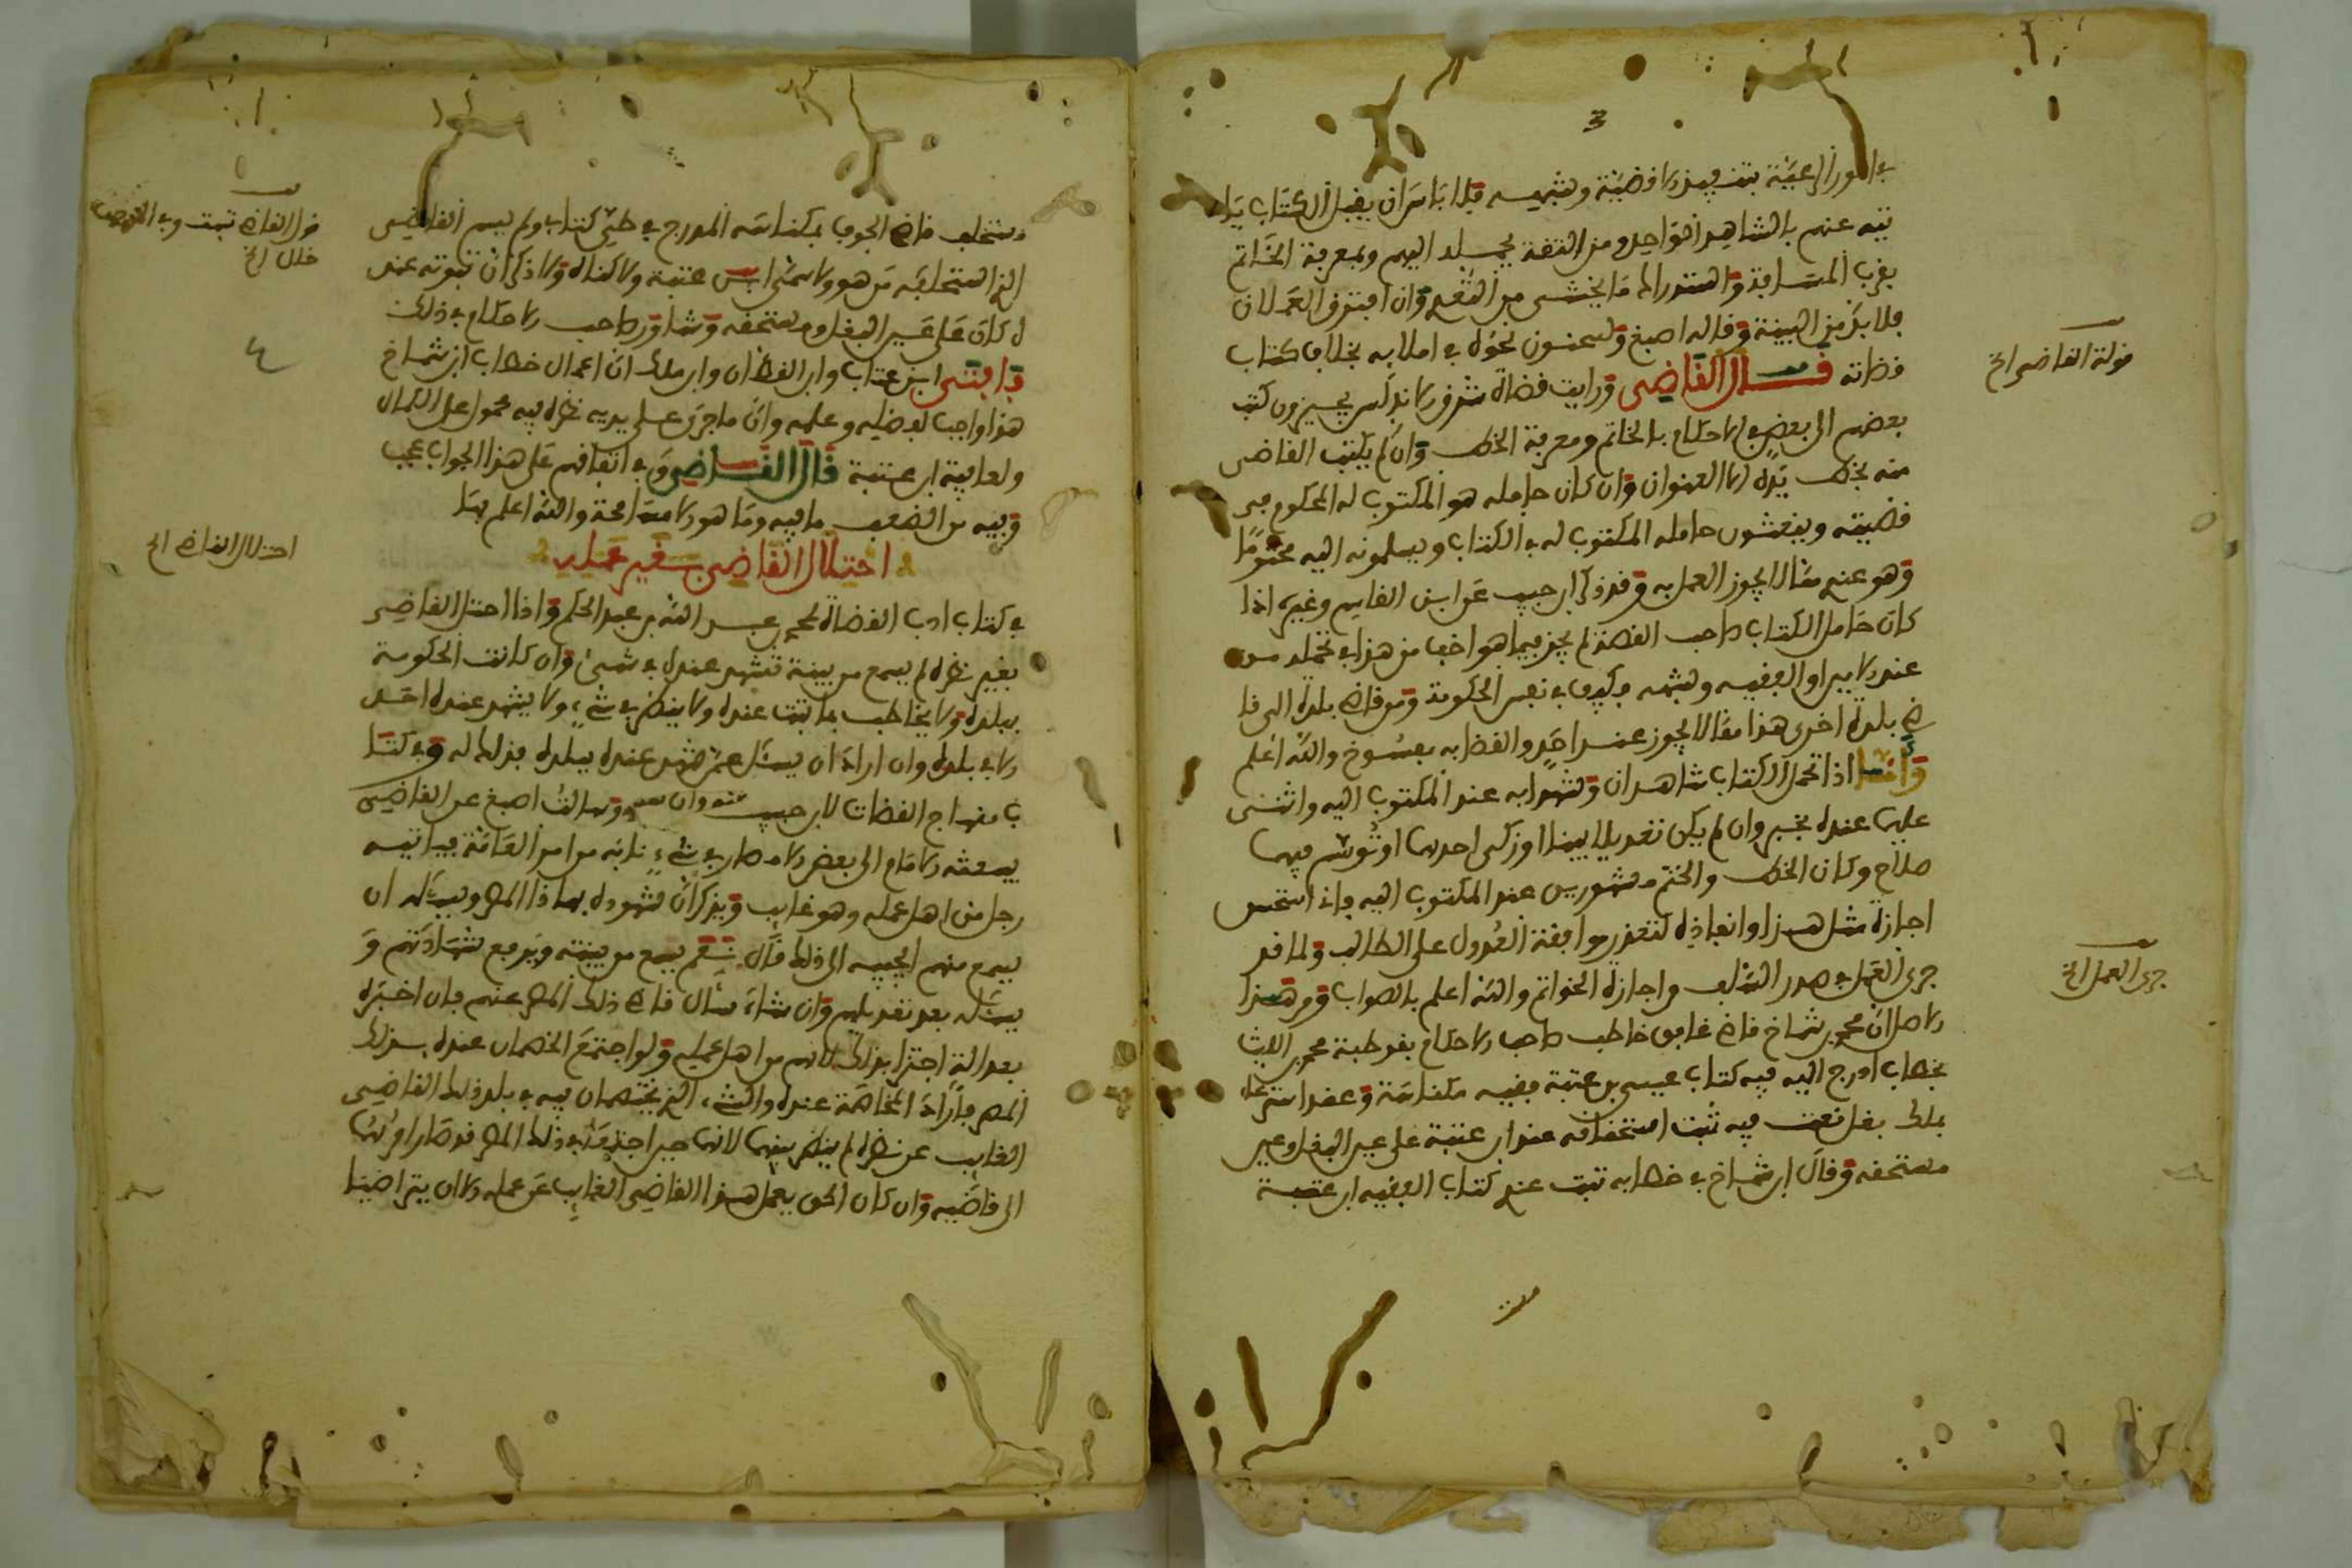 3
في امور الرعية بتنفيذ الاقضية وشبهه فلا باس ان يقبل الكتاب يا
تيه عنهم بالشاهد الواحد ومن الثقة يحمله اليهم وبمعرفة الخاتم
بقرب المسافة واستدراك ما يخشى من التعدي وان افترق العملان
فلا بد من البينة وقاله اصبغ وسحنون نحوه في املائه بخلاف كتاب
قضاته قال القاضي ورايت قضاة شرق الاندلس يجيزون كتب
بعضهم الى بعض في الاحكام بالخاتم ومعرفة الخط وان لم يكتب القاضي
منه بخط يده الا العنوان وان كان حامله هو المكتوب له المحكوم في
قضيته وينعشون حامله المكتوب له في الكتاب ويسلمونه اليه مختوما
وهو عندي مما لا يجوز العمل به وقد ذكر ابن حبيب عن ابن القاسم وغيره اذا
كان حامل الكتاب صاحب القصة لم يجز فيما هو اخف من هذا في تحمله من
عند الامير او الفقيه وشبهه فكيف في نفس الحكومة ومن قاضي بلدة الى قا
ضي بلدة اخرى هذا مما لا يجوز عند احد والقضا به مفسوخ والله اعلم
وامـا اذا تحمل الكتاب شاهدان وشهدا به عند المكتوب اليه واثنى
عليهما عنده بخير وان لم يكن تعديلا بينا او زكى احدهما او توسم فيهما
صلاح وكان الخط والختم مشهورين عند المكتوب اليه فاني استحسن
اجازة مثل هذا وانفاذه لتعذر موافقة العدول على الطالب ولما قد
جرى العمل في صدر السلف واجازة الخواتم والله اعلم بالصواب ومن هذا
الاصل ان محمد بن شماخ قاضي غافق خاطب صاحب الاحكام بقرطبة محمد بن الليث
بخطاب ادرج اليه فيه كتاب عيسى بن عتبة فقيه مكناسة وعقد استرعاء
بملك بغل نعت فيه ثبت استحقاقه عند ابن عتبة على عين البغل وعين
مستحقه وقال ابن شماخ في خطابه ثبت عندي كتاب الفقيه ابن عتبة
قولة القاضي الخ
جرى العمل الخ
مستخلف قاضي الجوف بمكناسة المدرج في طي كتابي ولم يسم القاضي
الذي استخلفه من هو ولا سمى ابن عتبة ولا كناه ولا ذكر ان ثبوته عند
ه كان على عين البغل ومستحقه وشاور صاحب الاحكام في ذلك
فافتى ابن عتاب وابن القطان وابن مالك ان اعمال خطاب ابن شماخ
هذا واجب لفضله وعلمه وان ما جرى على يديه نظره فيه محمول على الكمال
ولعافية ابن عتبة قال القاضي وفي اتفاقهم على هذا الجواب عجب
وفيه من الضعف ما فيه وما هو الا مسامحة والله اعلم بها
احتلال القاضي بغير عمله
في كتاب ادب القضاة لمحمد بن عبد الله بن عبد الحكم واذا احتل القاضي
بغير نظره لم يسمع من بينة تشهد عنده في شيء وان كانت الحكومة
ببلده ولا يخاطب بما ثبت عنده ولا ينظر في شيء ولا يشهد عنده احد
الا في بلده وان اراد ان يسئل عمن شهد عنده ببلده فذلك له وفي كتا
ب منهاج القضات لابن حبيب وسالت اصبغ عن القاضي
يبعثه الامام الى بعض الامصار في شيء نابه من امر العامة فياتيه
رجل من اهل عمله وهو غايب ويذكر ان شهوده بهاذا المصر ويسئله ان
يسمع منهم ايجيبه الى ذلك قال نعم يسمع من بينته ويرفع شهادتهم و
يسئله بعد تعديلهم وان شاء سال قاضي ذلك المصر عنهم فان اخبره
بعدالة اجتزا بذلك لانهم من اهل عمله ولو اجتمع الخصمان عنده بذلك
المصر فاراد المخاصمة عنده والشيء الذي يختصمان فيه في بلد ذلك القاضي
الغايب عن نظره لم ينظر بينهما لانهما حين اجتمعا في ذلك المصر قد صار امرهما
الى قاضيه وان كان الحق بعمل هذا القاضي الغايب عن عمله الا ان يتراضيا
قول القاضي ثبت وفي
خلال الخ
احتلال القاضي الخ